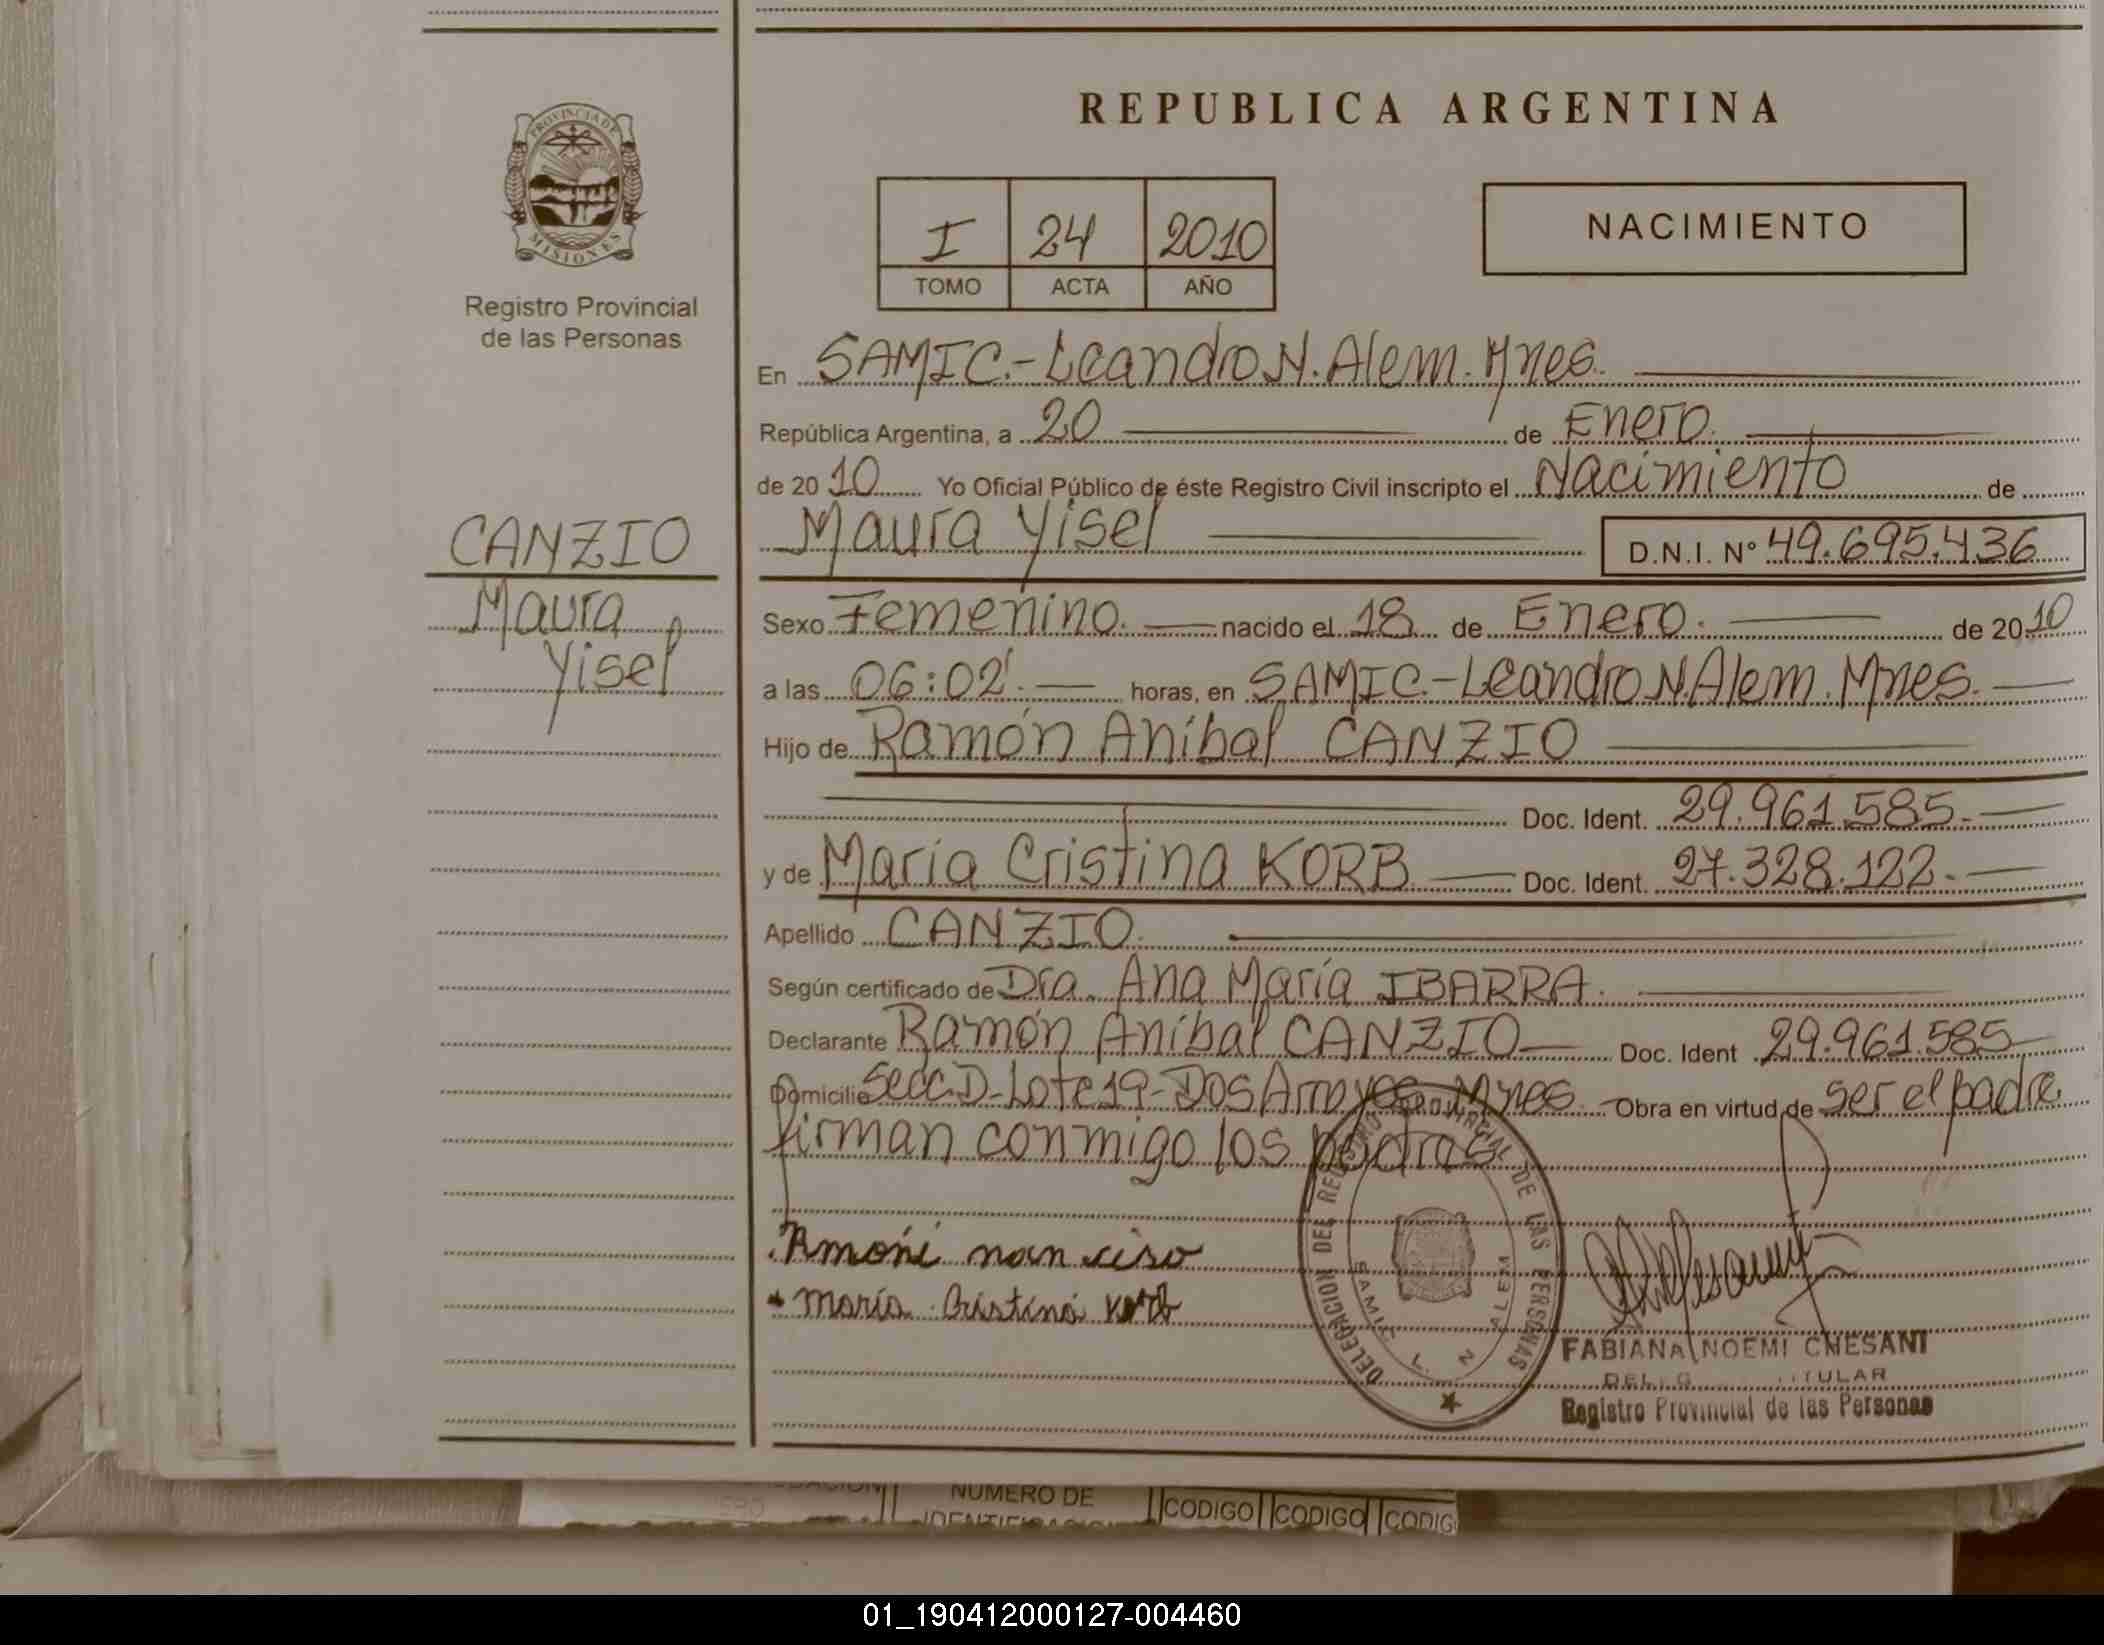 REPUBLICA ARGENTINA
PROVINCIA DE
MISIONES
Registro Provincial
de las Personas
I 24 2010
TOMO ACTA AÑO
NACIMIENTO
En SAMIC.-Leandro N. Alem. Mnes.
República Argentina, a 20 de Enero.
de 2010 Yo Oficial Público de éste Registro Civil inscripto el Nacimiento de
Maura Yisel D.N.I. Nº 49.695.436
CANZIO
Maura
Yisel
Sexo Femenino. nacido el 18 de Enero. de 2010
a las 06:02'. horas, en SAMIC.-Leandro N. Alem. Mnes.
Hijo de Ramón Aníbal CANZIO
Doc. Ident. 29.961.585.
y de María Cristina KORB Doc. Ident. 27.328.122.
Apellido CANZIO.
Según certificado de Dra. Ana María IBARRA.
Declarante Ramón Aníbal CANZIO Doc. Ident 29.961.585
Domicilio Secc.D-Lote 19-Dos Arroyos-Mnes. Obra en virtud de ser el padre
firman conmigo los padres
maría Cristina Korb
DELEGACION DEL REGISTRO PROVINCIAL DE LAS PERSONAS
SAMIC L. N ALEM
FABIANA NOEMI CHESANI
Registro Provincial de las Personas
NUMERO DE
CODIGO CODIGO CODIG
01_190412000127-004460